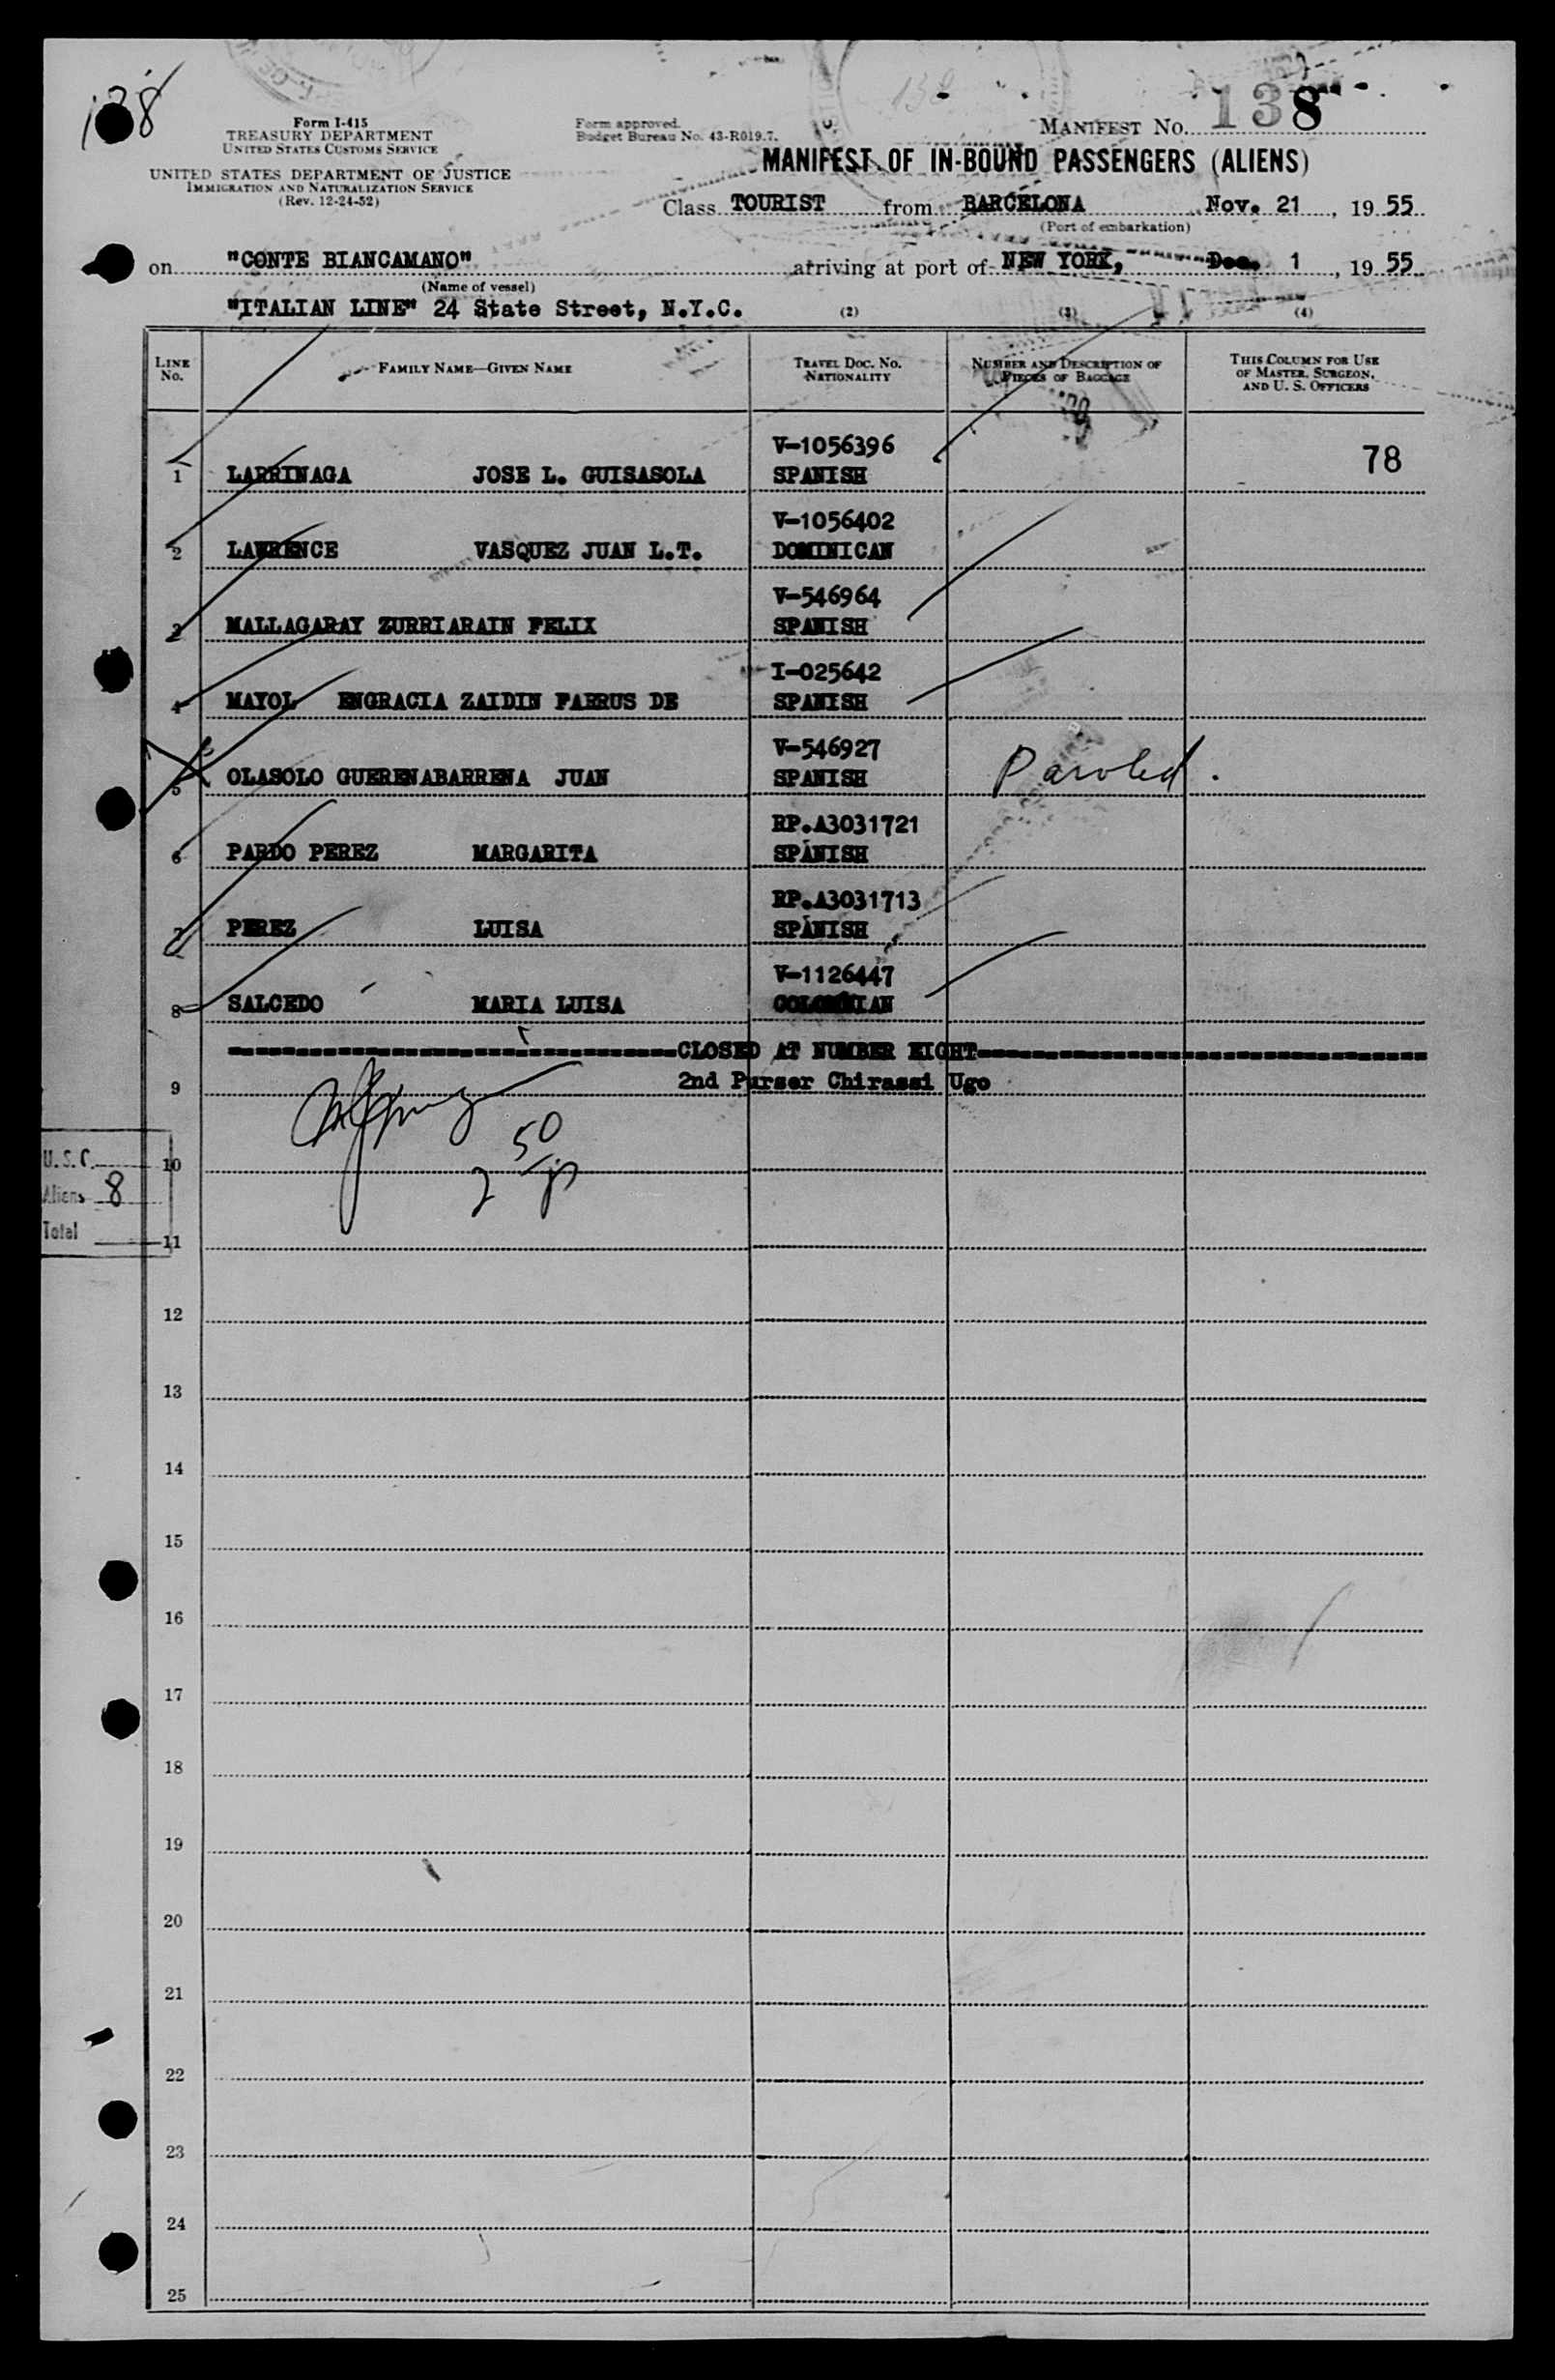 138
Form I-415
TREASURY DEPARTMENT
UNITED STATES CUSTOMS SERVICE
UNITED STATES DEPARTMENT OF JUSTICE
IMMIGRATION AND NATURALIZATION SERVICE
(Rev. 12-24-52)
Form approved.
Budget Bureau No. 43-R019.7.
138
MANIFEST No. 138
MANIFEST OF IN-BOUND PASSENGERS (ALIENS)
Class TOURIST from BARCELONA Nov. 21, 1955
(Port of embarkation)
on "CONTE BIANCAMANO" arriving at port of NEW YORK, Dec. 1, 1955
(Name of vessel)
"ITALIAN LINE" 24 State Street, N.Y.C. (2) (3) (4)
LINE No. FAMILY NAME—GIVEN NAME TRAVEL DOC. No. NATIONALITY NUMBER AND DESCRIPTION OF PIECES OF BAGGAGE THIS COLUMN FOR USE OF MASTER, SURGEON, AND U. S. OFFICERS
V-1056396 78
1 LARRINAGA JOSE L. GUISASOLA SPANISH
V-1056402
2 LAWRENCE VASQUEZ JUAN L.T. DOMINICAN
V-546964
3 MALLAGARAY ZURRIARAIN FELIX SPANISH
I-025642
4 MAYOL ENGRACIA ZAIDIN FARRUS DE SPANISH
V-546927
5 OLASOLO GUERENABARRENA JUAN SPANISH Paroled.
RP.A3031721
6 PARDO PEREZ MARGARITA SPANISH
RP.A3031713
7 PEREZ LUISA SPANISH
V-1126447
8 SALCEDO MARIA LUISA COLOMBIAN
CLOSED AT NUMBER EIGHT
2nd Purser Chirassi Ugo
9
50
U.S.C. 10
Aliens 8
Total 11
12
13
14
15
16
17
18
19
20
21
22
23
24
25